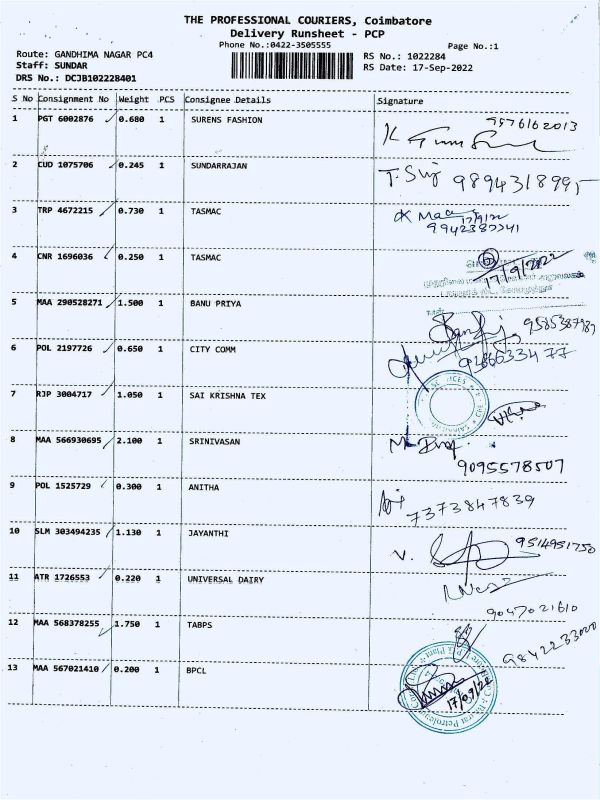 THE PROFESSIONAL COURIERS, Coimbatore
Delivery Runsheet - PCP
Phone No.:0422-3505555
Page No.:1
Route: GANDHIMA NAGAR PC4
Staff: SUNDAR
DRS No.: DCJB102228401
RS No.: 1022284
RS Date: 17-Sep-2022
S No Consignment No Weight PCS Consignee Details Signature
1 PGT 6002876 0.680 1 SURENS FASHION
9576162013
2 CUD 1075706 0.245 1 SUNDARRAJAN
3 TRP 4672215 0.730 1 TASMAC
4 CNR 1696036 0.250 1 TASMAC
17/9/2022
5 MAA 290528271 1.500 1 BANU PRIYA
6 POL 2197726 0.650 1 CITY COMM
7 RJP 3004717 1.050 1 SAI KRISHNA TEX
8 MAA 566930695 2.100 1 SRINIVASAN
9095578507
9 POL 1525729 0.300 1 ANITHA
7373847839
10 SLM 303494235 1.130 1 JAYANTHI
9514951750
11 ATR 1726553 0.220 1 UNIVERSAL DAIRY
9047021610
12 MAA 568378255 1.750 1 TABPS
9842233020
13 MAA 567021410 0.200 1 BPCL
17/09/22